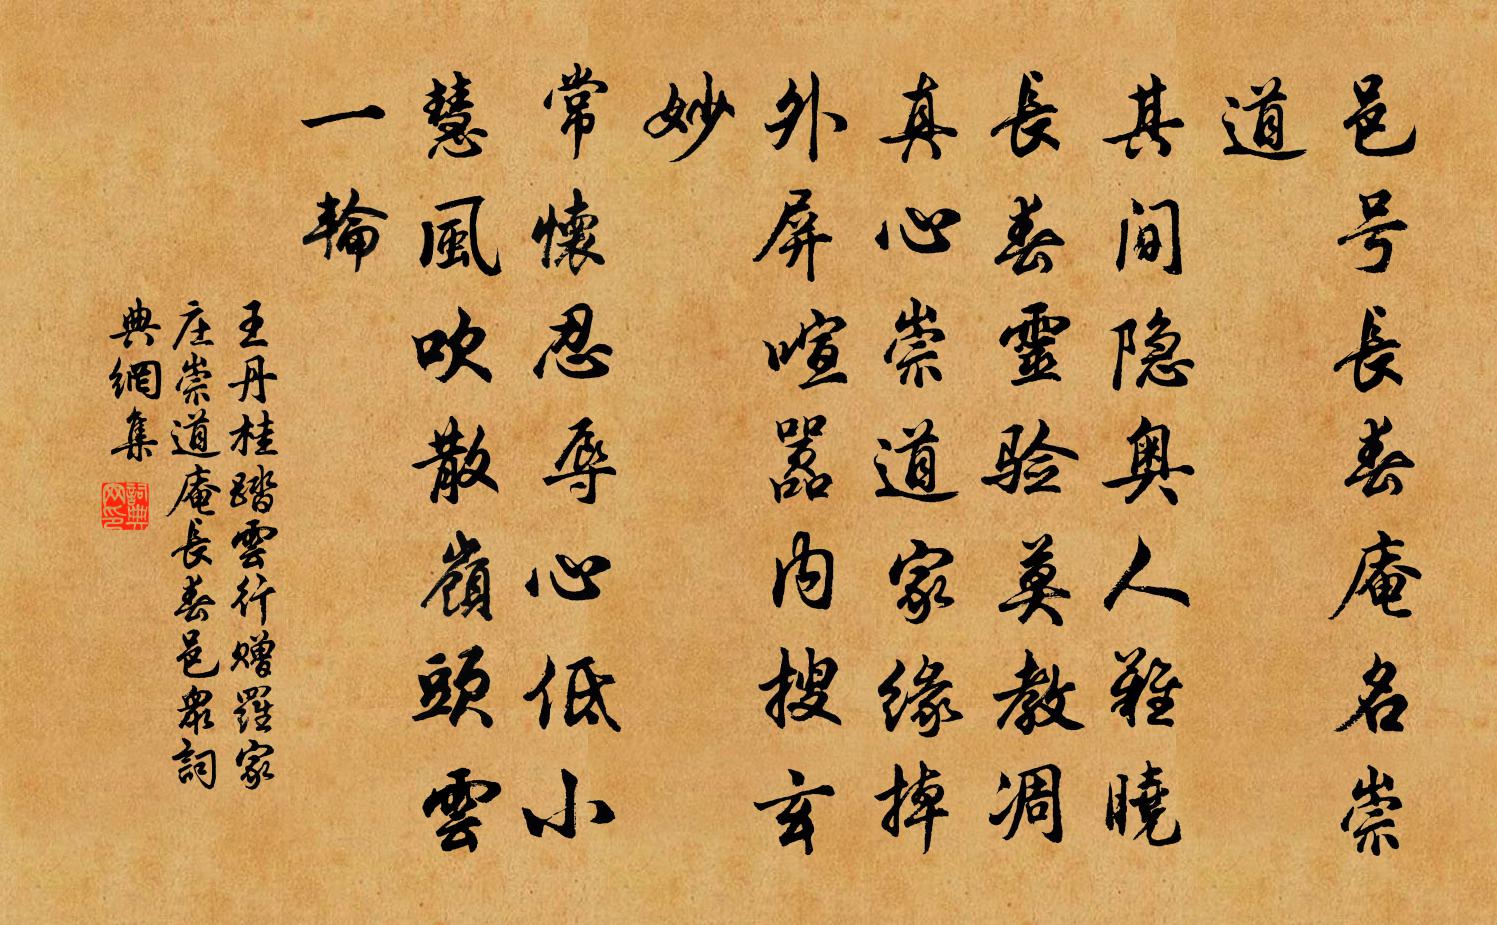 邑号長春庵名崇
道
其间隐奥人難曉
長春靈验莫教凋
真心崇道家缘掉
外屏喧嚣内搜玄
妙
常懷忍辱心低小
慧風吹散嶺頭雲
一輪
王丹桂踏雲行赠羅家
庄崇道庵長春邑眾詞
典網集
詞典
网印